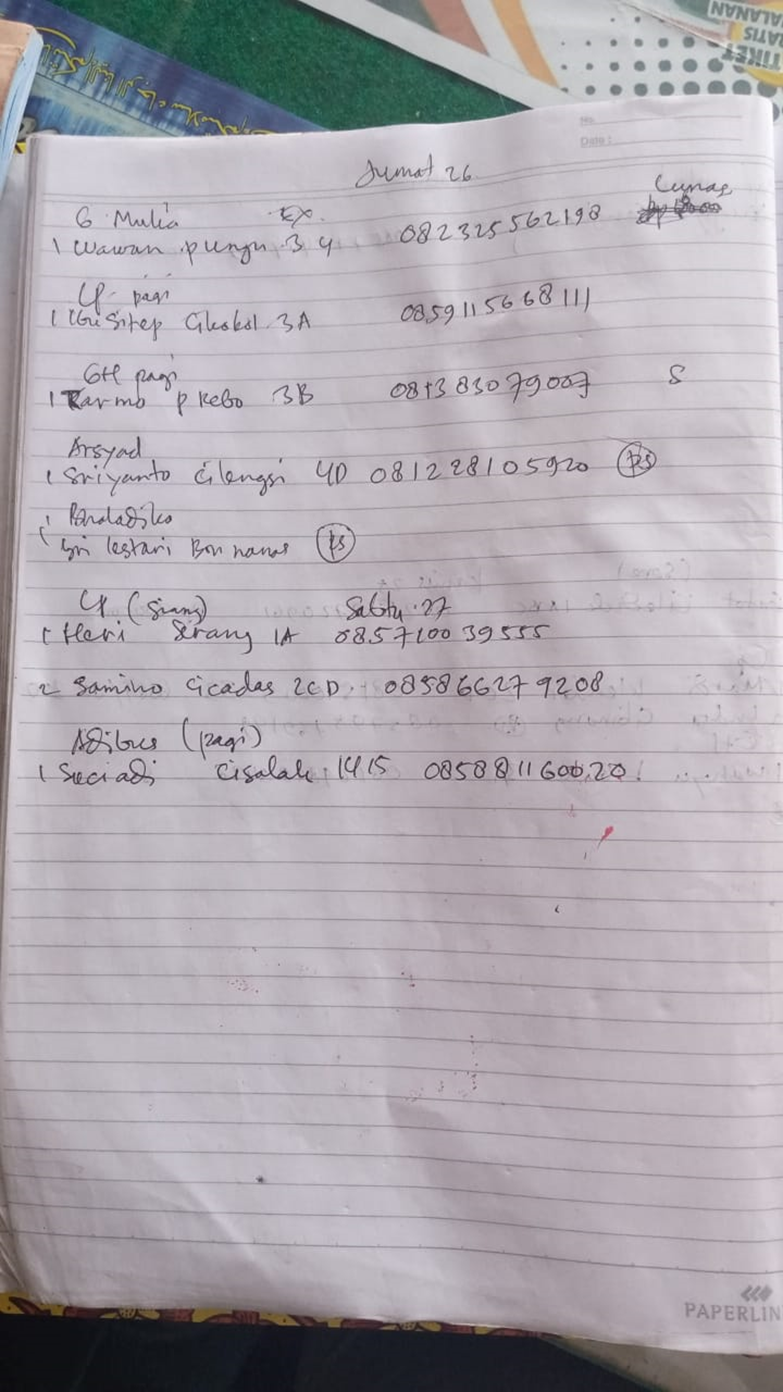 TIKET
GRATIS
JALANAN
No.
Date :
Jumat 26
G Mulia Ex. Lunas
1 Wawan p ungu 3 4 082325562198
LP pagi
1 Sitep Cikokol 3A 0859115668111
GH pagi
1 Karmo p Kebo 3B 081383079007 S
Arsyad
1 Sriyanto Cilengsi 4D 081228105920
1 Sri lestari Bon nanas
(Siang) Sabtu 27
1 Heri Serang 1A 085710039555
2 Samino Cicadas 2CD 085866279208
Adibus (pagi)
1 Suciadi Cisalak 14 15 085881160020
PAPERLIN